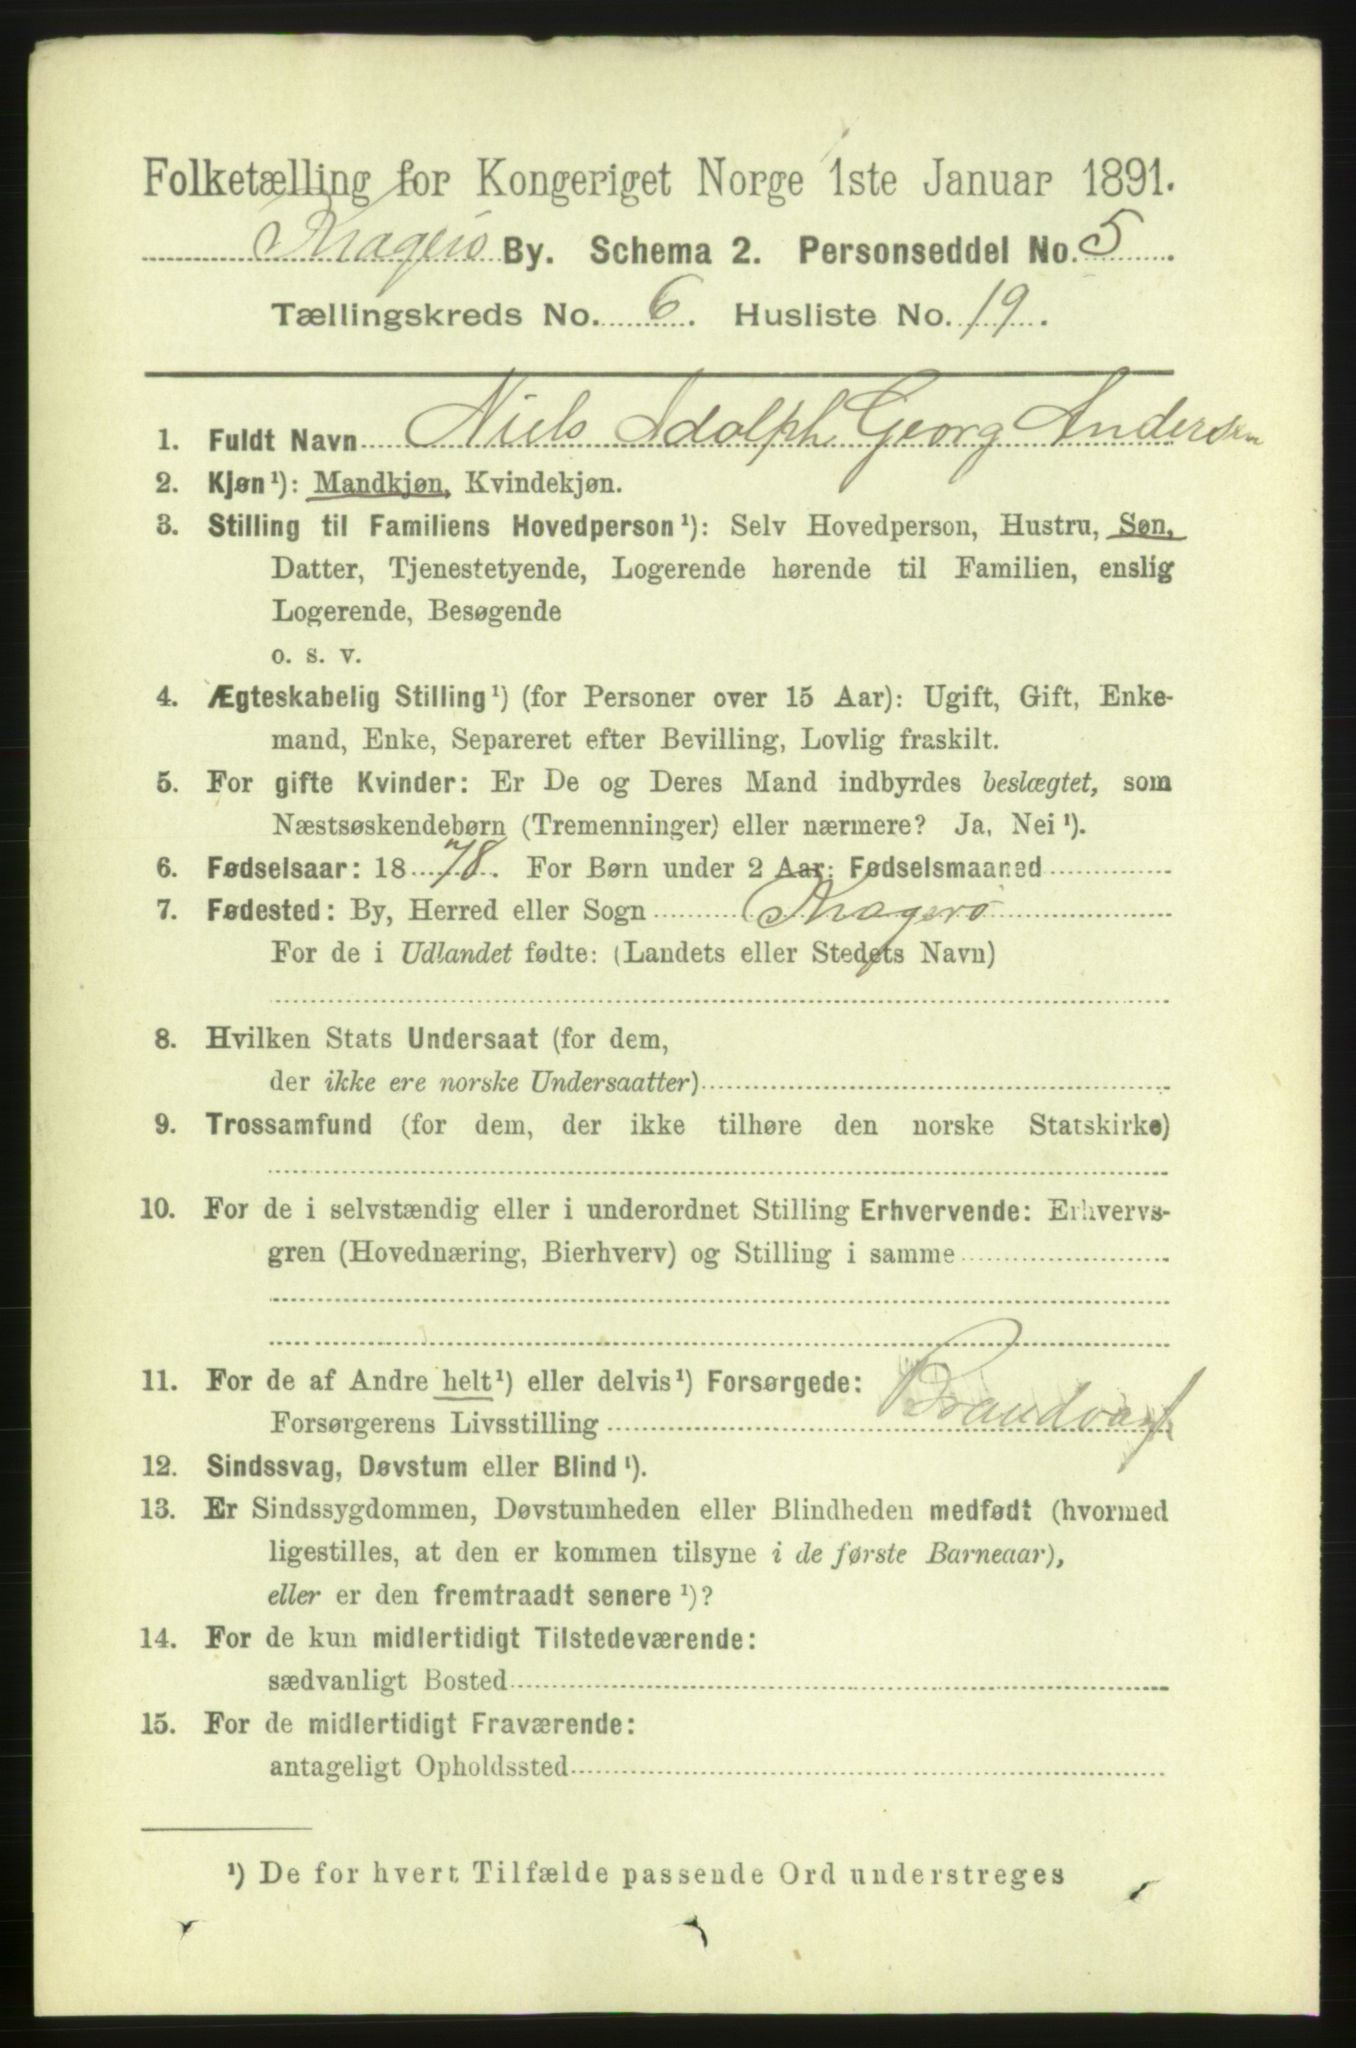 Folketælling for Kongeriget Norge 1ste Januar 1891.
Kragerö By. Schema 2. Personseddel No. 5.
Tællingskreds No. 6. Husliste No. 19.
1. Fuldt Navn Niels Adolph Georg Andersen
2. Kjøn¹): Mandkjøn, Kvindekjøn.
3. Stilling til Familiens Hovedperson¹): Selv Hovedperson, Hustru, Søn,
Datter, Tjenestetyende, Logerende hørende til Familien, enslig
Logerende, Besøgende
o. s. v.
4. Ægteskabelig Stilling¹) (for Personer over 15 Aar): Ugift, Gift, Enke-
mand, Enke, Separeret efter Bevilling, Lovlig fraskilt.
5. For gifte Kvinder: Er De og Deres Mand indbyrdes beslægtet, som
Næstsøskendebørn (Tremenninger) eller nærmere? Ja, Nei¹).
6. Fødselsaar: 1878. For Børn under 2 Aar: Fødselsmaaned
7. Fødested: By, Herred eller Sogn Kragerö
For de i Udlandet fødte: (Landets eller Stedets Navn)
8. Hvilken Stats Undersaat (for dem,
der ikke ere norske Undersaatter)
9. Trossamfund (for dem, der ikke tilhøre den norske Statskirke)
10. For de i selvstændig eller i underordnet Stilling Erhvervende: Erhvervs-
gren (Hovednæring, Bierhverv) og Stilling i samme
11. For de af Andre helt¹) eller delvis¹) Forsørgede:
Forsørgerens Livsstilling Brandvagt
12. Sindssvag, Døvstum eller Blind¹).
13. Er Sindssygdommen, Døvstumheden eller Blindheden medfødt (hvormed
ligestilles, at den er kommen tilsyne i de første Barneaar),
eller er den fremtraadt senere¹)?
14. For de kun midlertidigt Tilstedeværende:
sædvanligt Bosted
15. For de midlertidigt Fraværende:
antageligt Opholdssted
¹) De for hvert Tilfælde passende Ord understreges